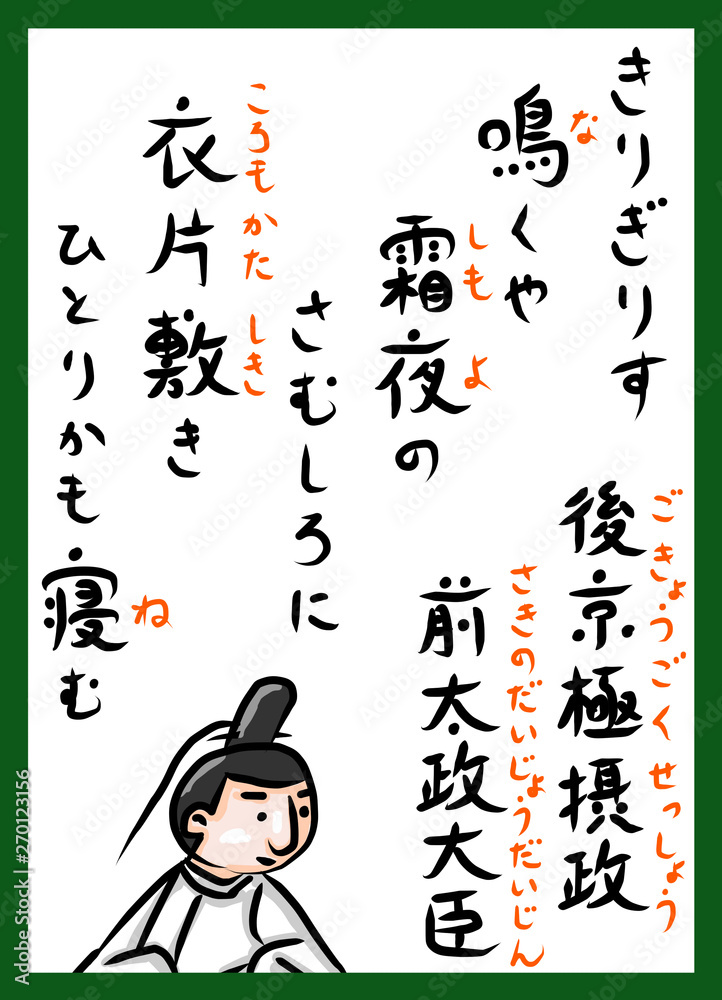 きりぎりす
鳴くや
な
霜夜の
しもよ
さむしろに
衣片敷き
ころもかたしき
ひとりかも寝む
ね
後京極摂政
ごきょうごくせっしょう
前太政大臣
さきのだいじょうだいじん
Adobe Stock | #270123156